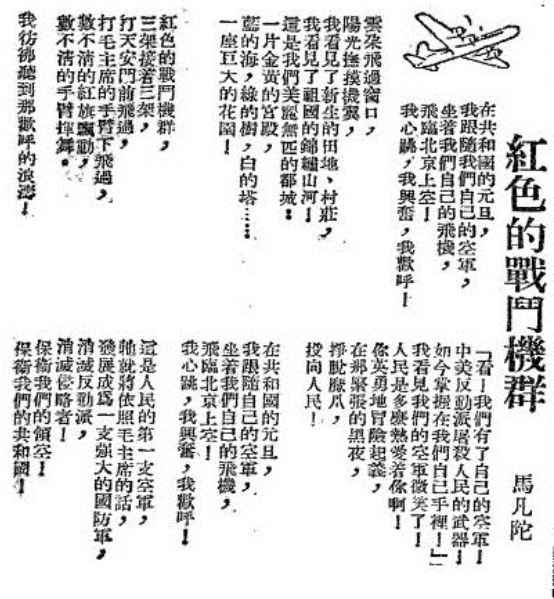 紅色的戰鬥機群
馬凡陀
在共和國的元旦，
我跟隨我們自己的空軍，
坐着我們自己的飛機，
飛臨北京上空！
我心跳，我興奮，我歡呼！
雲朵飛過窗口，
陽光撫摸機翼，
我看見了新生的田地、村莊，
我看見了祖國的錦繡山河！
這是我們美麗無匹的都城：
一片金黃的宮殿，
藍的海，綠的樹，白的塔……
一座巨大的花園！
紅色的戰鬥機群，
三架接着三架，
打天安門前飛過，
打毛主席的手臂下飛過，
數不清的紅旗飄動，
數不清的手臂揮舞。
我彷彿聽到那歡呼的浪濤！
「看！我們有了自己的空軍！
中美反動派屠殺人民的武器！
如今掌握在我們自己手裡！」
我看見我們的空軍微笑了！
人民是多麼熱愛着你啊！
你英勇地冒險起義，
在那緊張的黑夜，
掙脫魔爪，
投向人民！
在共和國的元旦，
我跟隨我們自己的空軍，
坐着我們自己的飛機，
飛臨北京上空！
我心跳，我興奮，我歡呼！
這是人民的第一支空軍，
牠就將依照毛主席的話，
發展成爲一支強大的國防軍，
消滅反動派，
消滅侵略者！
保衞我們的領空！
保衞我們的共和國！